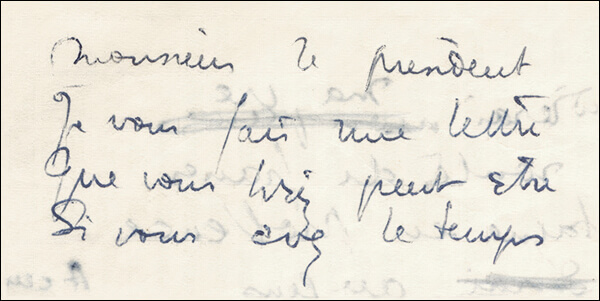 Monsieur le président
Je vous fais une lettre
Que vous lirez peut être
Si vous avez le temps